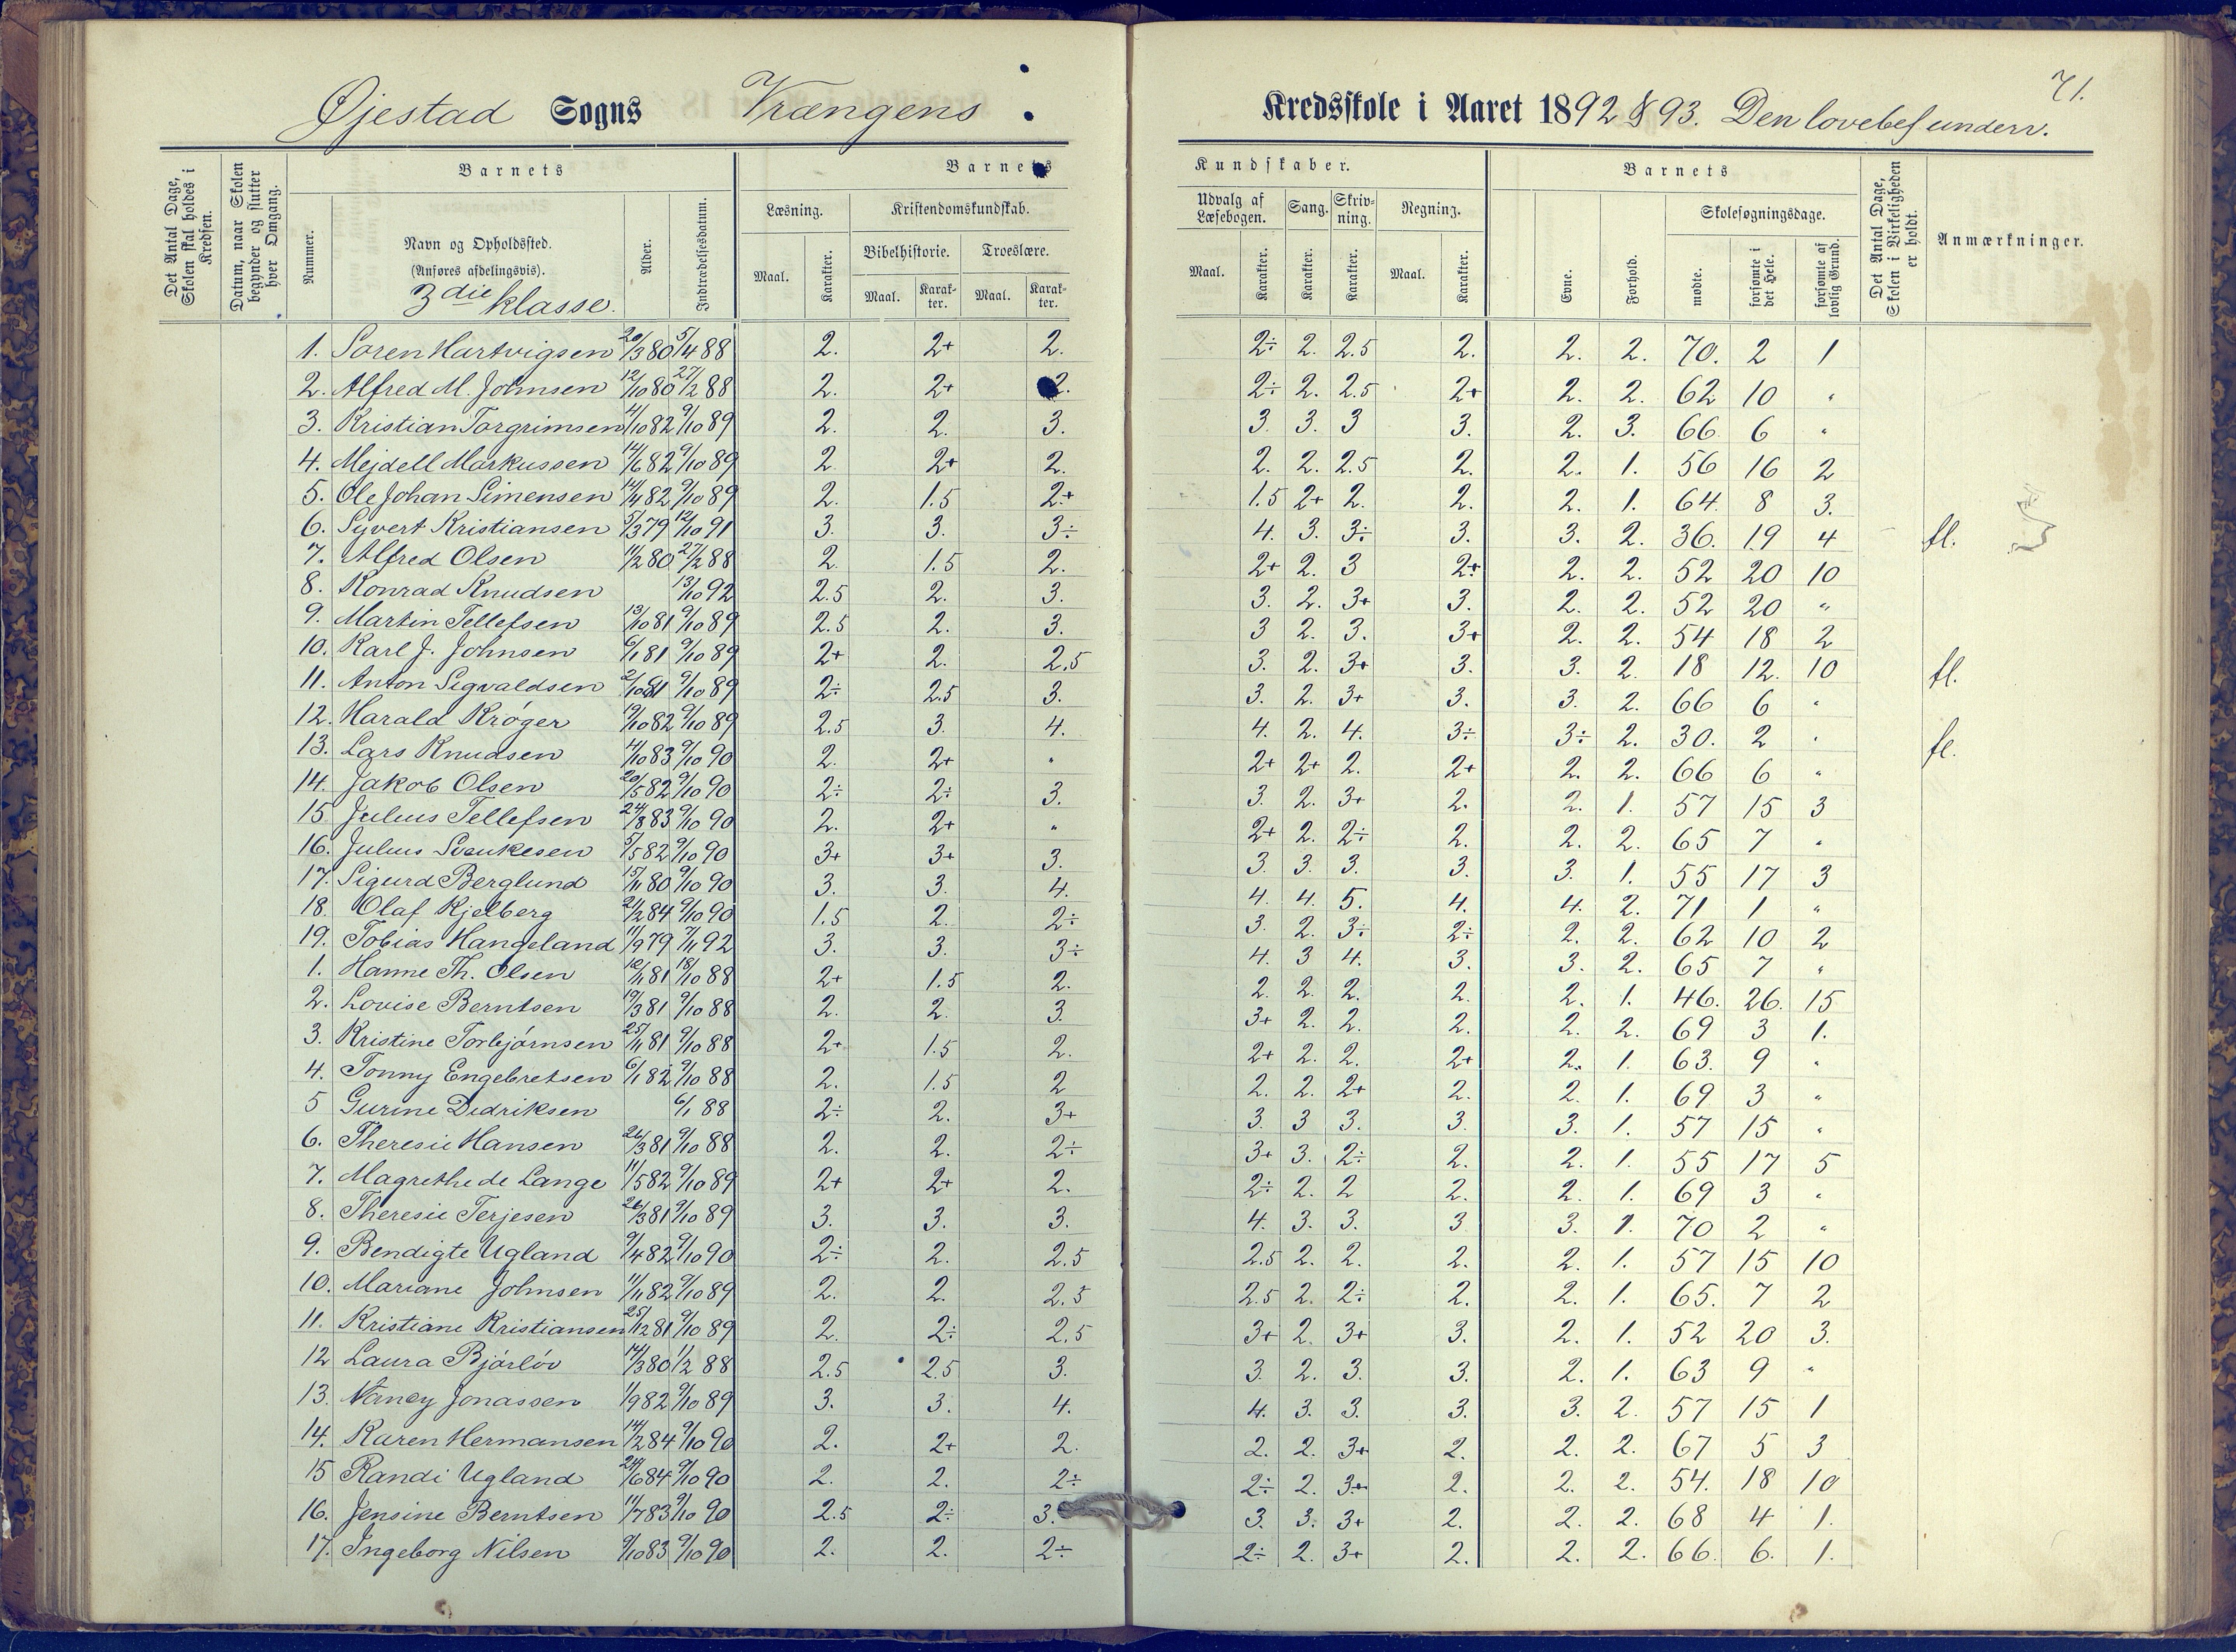 71.
Øjestad Sogns Vrængens Kredsskole i Aaret 1892 & 93. Den lovebef underv.
Det Antal Dage, Skolen skal holdes i Kredsen.
Datum, naar Skolen begynder og slutter hver Omgang.
Barnets
Nummer.
Navn og Opholdssted.
(Anføres afdelingsvis).
3die klasse.
Alder.
Indtrædelsesdatum.
Barnets Kundskaber.
Læsning.
Maal. Karakter.
Kristendomskundskab.
Bibelhistorie. Troeslære.
Maal. Karakter. Maal. Karakter.
Udvalg af Læsebogen. Sang. Skrivning. Regning.
Maal. Karakter. Karakter. Karakter. Maal. Karakter.
Barnets
Evne. Forhold.
Skolesøgningsdage.
mødte. forsømte i det Hele. forsømte af lovlig Grund.
Det Antal Dage, Skolen i Virkeligheden er holdt.
Anmærkninger.
1. Søren Hartvigsen 20/3 80 5/4 88 2. 2+ 2. 2÷ 2. 2.5 2. 2. 2. 70. 2 1
2. Alfred M. Johnsen 12/10 80 27/2 88 2. 2+ 2. 2÷ 2. 2.5 2+ 2. 2. 62 10 "
3. Kristian Torgrimsen 4/10 82 9/10 89 2. 2. 3. 3. 3. 3 3. 2. 3. 66 6 "
4. Mejdell Markussen 14/6 82 9/10 89 2 2+ 2. 2. 2. 2.5 2. 2. 1. 56 16 2
5. Ole Johan Simensen 14/4 82 9/10 89 2. 1.5 2+ 1.5 2+ 2. 2. 2. 1. 64. 8 3.
6. Syvert Kristiansen 5/3 79 12/10 91 3. 3. 3÷ 4. 3. 3÷ 3. 3. 2. 36. 19 4 fl.
7. Alfred Olsen 11/2 80 27/2 88 2. 1.5 2. 2+ 2. 3 2+ 2. 2. 52 20 10
8. Konrad Knudsen 13/10 92 2.5 2. 3. 3. 2. 3+ 3. 2. 2. 52 20 "
9. Martin Tellefsen 13/10 81 9/10 89 2.5 2. 3. 3 2. 3. 3+ 2. 2. 54 18 2
10. Karl J. Johnsen 6/1 81 9/10 89 2+ 2. 2.5 3. 2. 3+ 3. 3. 2. 18 12. 10 fl.
11. Anton Sigvaldsen 2/10 81 9/10 89 2÷ 2.5 3. 3. 2. 3+ 3. 3. 2. 66 6 "
12. Harald Krøger 19/10 82 9/10 89 2.5 3. 4. 4. 2. 4. 3÷ 3÷ 2. 30. 2 " fl.
13. Lars Knudsen 4/10 83 9/10 90 2. 2+ " 2+ 2+ 2. 2+ 2. 2. 66 6 "
14. Jakob Olsen 20/5 82 9/10 90 2÷ 2÷ 3. 3. 2. 3+ 2. 2. 1. 57 15 3
15 Julius Tellefsen 24/8 83 9/10 90 2. 2+ " 2+ 2. 2÷ 2. 2. 2. 65 7 "
16. Julius 5/5 82 9/10 90 3+ 3+ 3. 3. 3. 3. 3. 3. 1. 55 17 3
17. Sigurd Berglund 15/11 80 9/10 90 3. 3. 4. 4. 4. 5. 4. 4. 2. 71 1 "
18. Olaf Kjelberg 21/2 84 9/10 90 1.5 2. 2÷ 3. 2. 3÷ 2÷ 2. 2. 62 10 2
19. Tobias Hangeland 11/9 79 7/11 92 3. 3. 3÷ 4. 3 4. 3. 3. 2. 65 7 "
1. Hanne Th. Olsen 12/11 81 18/10 88 2+ 1.5 2. 2. 2. 2. 2. 2. 1. 46. 26. 15
2. Lovise Berntsen 19/3 81 9/10 88 2. 2. 3. 3+ 2. 2. 2. 2. 2. 69 3 1.
3. Kristine Torbjørnsen 25/11 81 9/10 88 2+ 1.5 2. 2+ 2. 2. 2+ 2. 1. 63. 9 "
4. Tonny Engebretsen 6/1 82 9/10 88 2. 1.5 2 2. 2. 2+ 2. 2. 1. 69 3 "
5 Gurine Didriksen 6/1 88 2÷ 2. 3+ 3. 3 3. 3. 3. 1. 57 15 "
6. Theresie Hansen 26/3 81 9/10 88 2. 2. 2÷ 3+ 3. 2÷ 2. 2. 1. 55 17 5
7. Magrethe de Lange 11/5 82 9/10 89 2+ 2+ 2. 2÷ 2. 2 2. 2. 1. 69 3 "
8. Theresie Terjesen 26/3 81 9/10 89 3. 3. 3. 4. 3. 3. 3 3. 1. 70 2 "
9. Bendigte Ugland 9/4 82 9/10 90 2÷ 2. 2.5 2.5 2. 2. 2. 2. 1. 57 15 10
10. Mariane Johnsen 11/11 82 9/10 89 2. 2. 2.5 2.5 2. 2÷ 2. 2. 1. 65. 7 2
11. Kristiane Kristiansen 25/12 81 9/10 89 2. 2÷ 2.5 3+ 2. 3+ 3. 2. 1. 52 20 3.
12 Laura Bjørløv 14/3 80 1/2 88 2.5 2.5 3. 3. 2. 3. 3. 2. 1. 63 9 "
13. Nancy Jonassen 1/9 82 9/10 89 3. 3. 4. 4. 3. 3. 3. 3. 2. 57 15 1
14. Karen Hermansen 14/2 84 9/10 90 2. 2+ 2. 2. 2. 3+ 2. 2. 2. 67 5 3
15 Randi Ugland 24/6 84 9/10 90 2. 2. 2÷ 2÷ 2. 3+ 2. 2. 2. 54. 18 10
16. Jensine Berntsen 11/7 83 9/10 90 2.5 2÷ 3. 3. 3. 3+ 2. 2. 2. 68 4 1.
17. Ingeborg Nilsen 9/10 83 9/10 90 2. 2. 2÷ 2÷ 2. 3+ 2. 2. 2. 66. 6. 1.